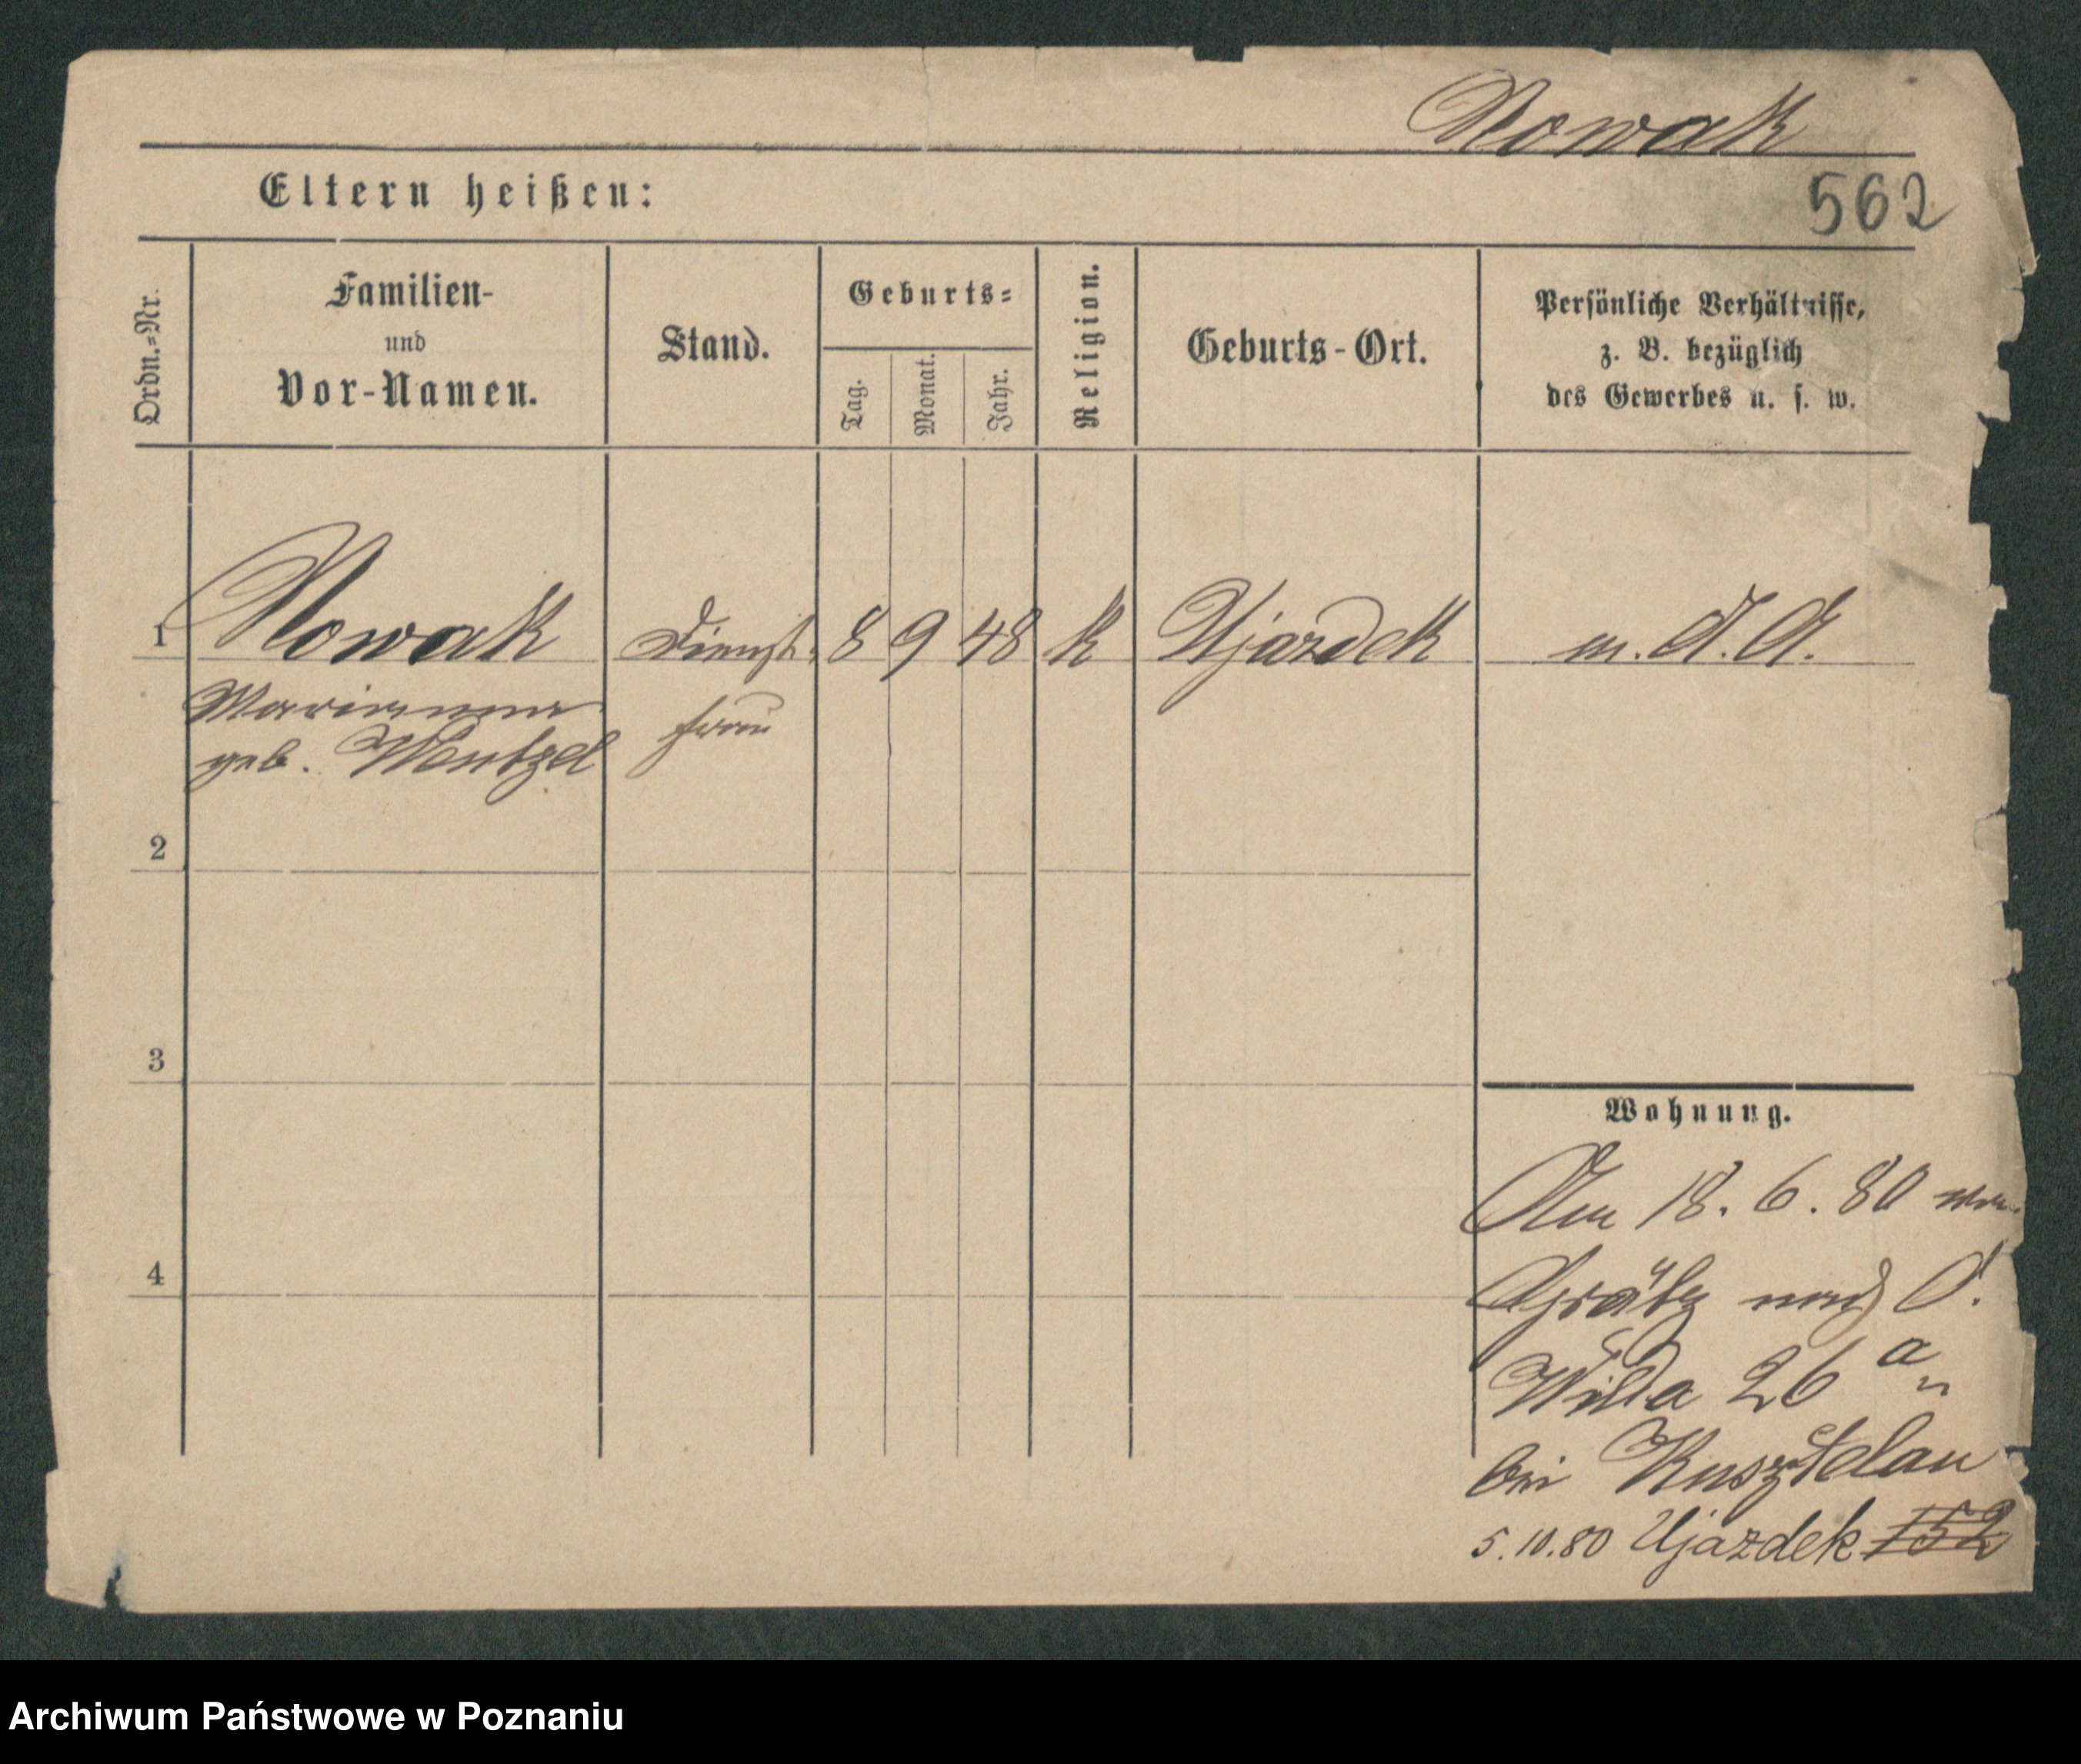 Nowak
Eltern heißen:
562
Ordn.-Nr.
Familien-
und
Vor-Namen.
Stand.
Geburts-
Tag.
Monat.
Jahr.
Religion.
Geburts-Ort.
Persönliche Verhältnisse,
z. B. bezüglich
des Gewerbes u. s. w.
1 Nowak Dienst- 8 9 48 k Ujazdek m. A. A.
Marianna frau
geb. Wentzel
2
3
4
Wohnung.
Am 18. 6. 80 von
Grätz nach O.
Wilda 26 a
bei
5.10.80 Ujazdek 152
Archiwum Państwowe w Poznaniu